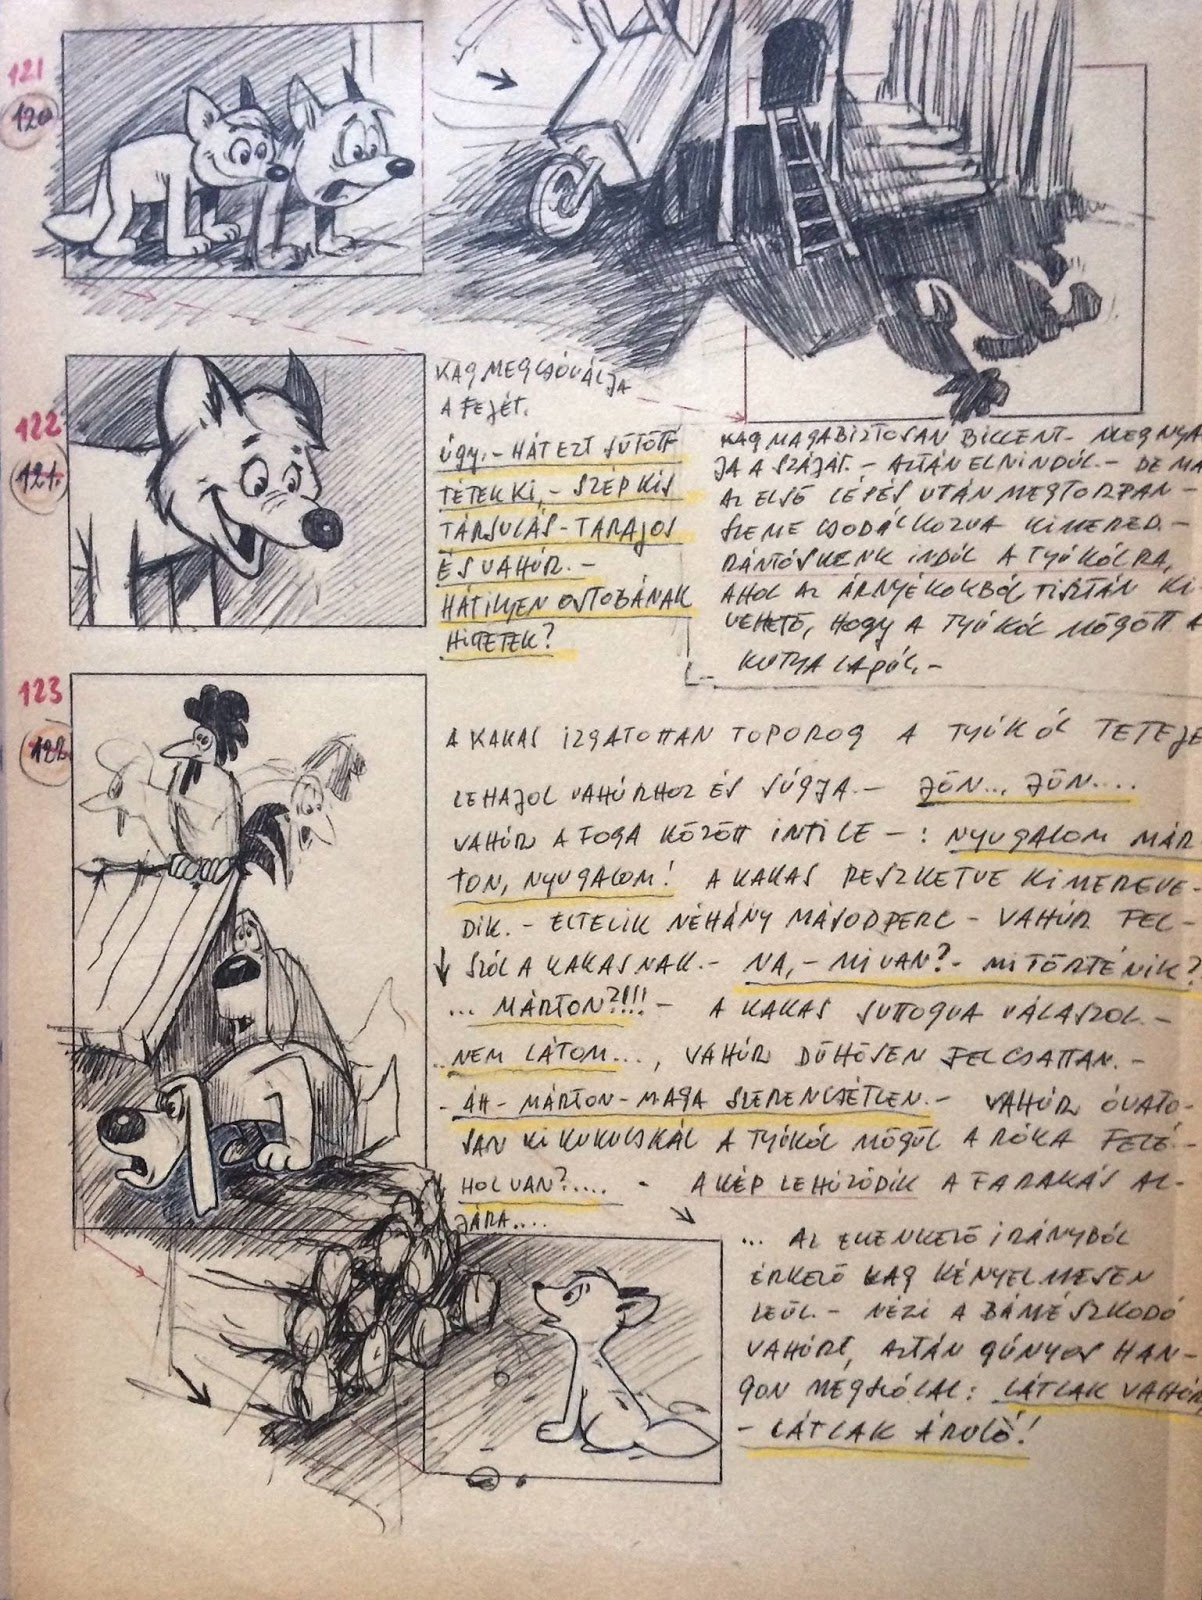 121
120
122
121.
KAG MEGCSÓVÁLJA
A FEJÉT.
ÚGY.- HÁT EZT SÜTÖTT
TÉTEK KI,- SZÉP KIS
TÁRSULÁS-TARAJOS
ÉS VAHÚR.-
HÁT ILYEN OSTOBÁNAK
HITTETEK?
KAG MAGABIZTOSAN BICCENT- MEGNYA
JA A SZÁJÁT.- AZTÁN ELNINDÚL.- DE MÁ
AZ ELSŐ LÉPÉS UTÁN MEGTORPAN-
SZEME CSODÁLKOZVA KIMERED.-
INDÚL A TYÚKÓLRA,
AHOL AZ ÁRNYÉKOKBÓL TISZTÁN KI
VEHETŐ, HOGY A TYÚKÓL MÖGÖTT A
KUTYA LAPÚL.-
123
122.
A KAKAS IZGATOTTAN TOPOROG A TYÚKÓL TETEJE
LEHAJOL VAHÚRHOZ ÉS SÚGJA.- JÖN..., JÖN....
VAHÚR A FOGA KÖZÖTT INTI LE-: NYUGALOM MÁR
TON, NYUGALOM! A KAKAS RESZKETVE KIMEREVE-
DIK.- ELTELIK NÉHÁNY MÁSODPERC- VAHÚR FEL-
SZÓL A KAKASNAK.- NA,- MI VAN?- MI TÖRTÉNIK?
... MÁRTON?!!!- A KAKAS SUTTOGVA VÁLASZOL.-
..NEM LÁTOM..., VAHÚR DÜHÖSEN FELCSATTAN.-
- ÁH- MÁRTON- MAGA SZERENCSÉTLEN.- VAHÚR ÓVATO-
SAN KI KUKUCSKÁL A TYÚKÓL MÖGÜL A RÓKA FELÉ.-
HOL VAN?..... - A KÉP LEHÚZÓDIK A FARAKÁS AL-
JÁRA....
... AZ ELLENKEZŐ IRÁNYBÓL
ÉRKEZŐ KAG KÉNYELMESEN
LEÜL.- NÉZI A BÁMÉSZKODÓ
VAHÚRT, AZTÁN GÚNYOS HAN-
GON MEGSZÓLAL: LÁTLAK VAHÚR,
- LÁTLAK ÁRULÓ!